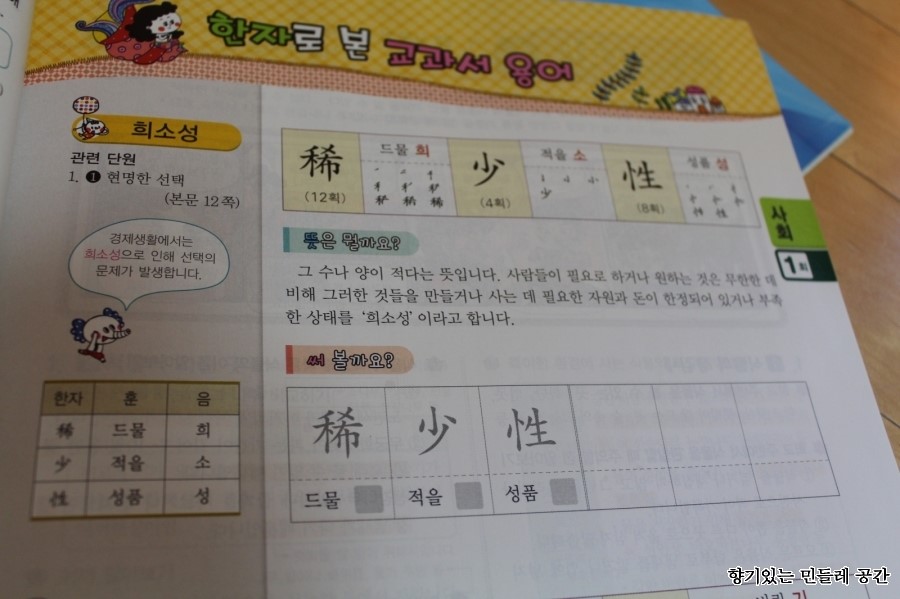 한자로 본 교과서 용어
희소성
관련 단원
1. ❶ 현명한 선택
(본문 12쪽)
경제생활에서는
희소성으로 인해 선택의
문제가 발생합니다.
한자 훈 음
稀 드물 희
少 적을 소
性 성품 성
稀 드물 희 少 적을 소 性 성품 성
(12획) (4획) (8획)
사회
1회
뜻은 뭘까요?
그 수나 양이 적다는 뜻입니다. 사람들이 필요로 하거나 원하는 것은 무한한 데
비해 그러한 것들을 만들거나 사는 데 필요한 자원과 돈이 한정되어 있거나 부족
한 상태를 ‘희소성’이라고 합니다.
써 볼까요?
稀 少 性
드물 적을 성품
향기있는 민들레 공간